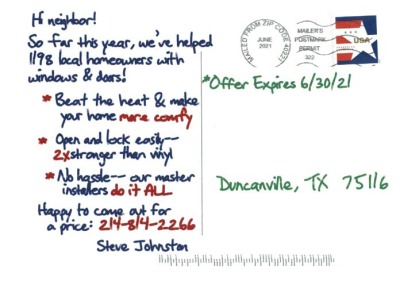 Hi neighbor!
So far this year, we've helped
1198 local homeowners with
windows & doors!
* Beat the heat & make
your home more comfy
* Open and lock easily--
2x stronger than vinyl
* No hassle-- our master
installers do it ALL
Happy to come out for
a price: 214-814-2266
Steve Johnston
MAILED FROM ZIP CODE 40221
JUNE
2021
MAILER'S
POSTMARK
PERMIT
322
USA
*Offer Expires 6/30/21
Duncanville, TX 75116